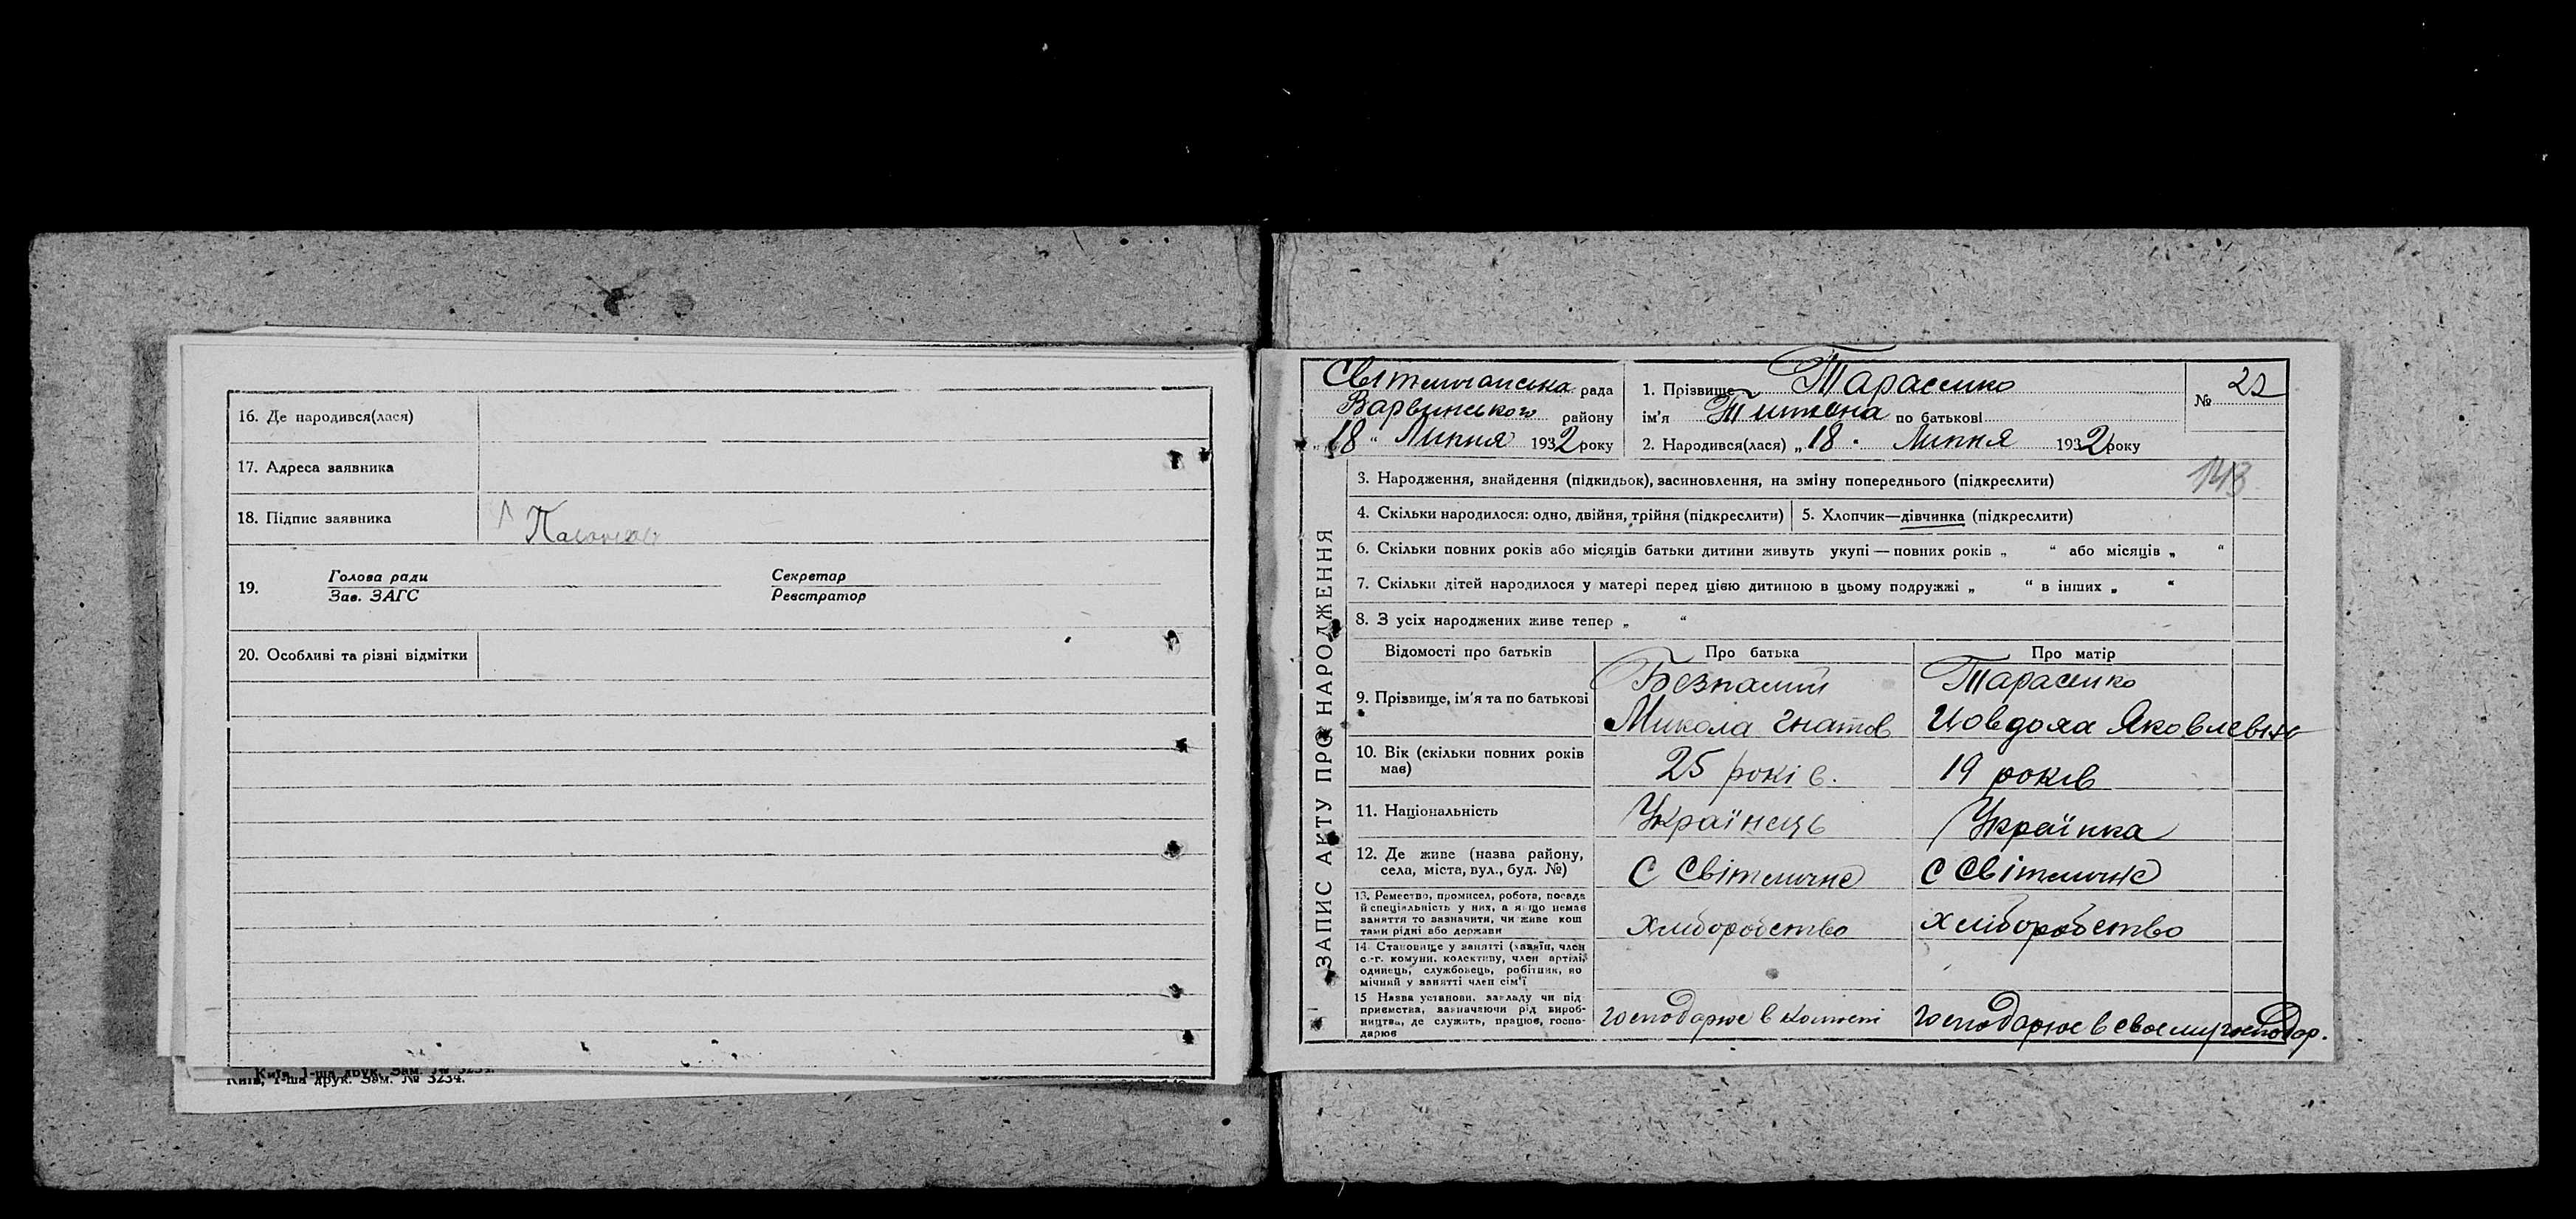 16. Де народився(лася)
17. Адреса заявника
18. Підпис заявника
19. Голова ради Секретар
Зав. ЗАГС Реєстратор
20. Особливі та різні відмітки
Київ, 1-ша друк. Зам. № 3234.
ЗАПИС АКТУ ПРО НАРОДЖЕННЯ
Світличанська рада
Варвинського району
"18" Липня 1932 року
1. Прізвище Тарасенко
ім'я Титяна по батькові
2. Народився(лася) „18" Липня 1932 року
№ 22
143
3. Народження, знайдення (підкидьок), засиновлення, на зміну попереднього (підкреслити)
4. Скільки народилося: одно, двійня, трійня (підкреслити) 5. Хлопчик—дівчинка (підкреслити)
6. Скільки повних років або місяців батьки дитини живуть укупі — повних років „ “ або місяців „ “
7. Скільки дітей народилося у матері перед цією дитиною в цьому подружжі „ “ в інших „ “
8. З усіх народжених живе тепер „ “
Відомості про батьків Про батька Про матір
9. Прізвище, ім'я та по батькові
Безпалий
Микола Гнатов
Тарасенко
Иовдоха Яковлевна
10. Вік (скільки повних років
має)
25 років. 19 років
11. Національність Українець Українка
12. Де живе (назва району,
села, міста, вул., буд. №)
С Світличне С Світличне
13. Ремество, промисел, робота, посада
й спеціяльність у них, а якщо немає
заняття то зазначити, чи живе кош
тами рідні або держави
Хліборобство Хліборобство
14. Становище у занятті (хазяїн, член
с.-г. комуни, колективу, член артілі,
одинець, службовець, робітник, по
мічний у занятті член сім'ї
15 Назва установи, закладу чи під
приємства, зазначаючи рід вироб-
ництва, де служить, працює, госпо-
дарює
господарює в господарює в своєму господар.